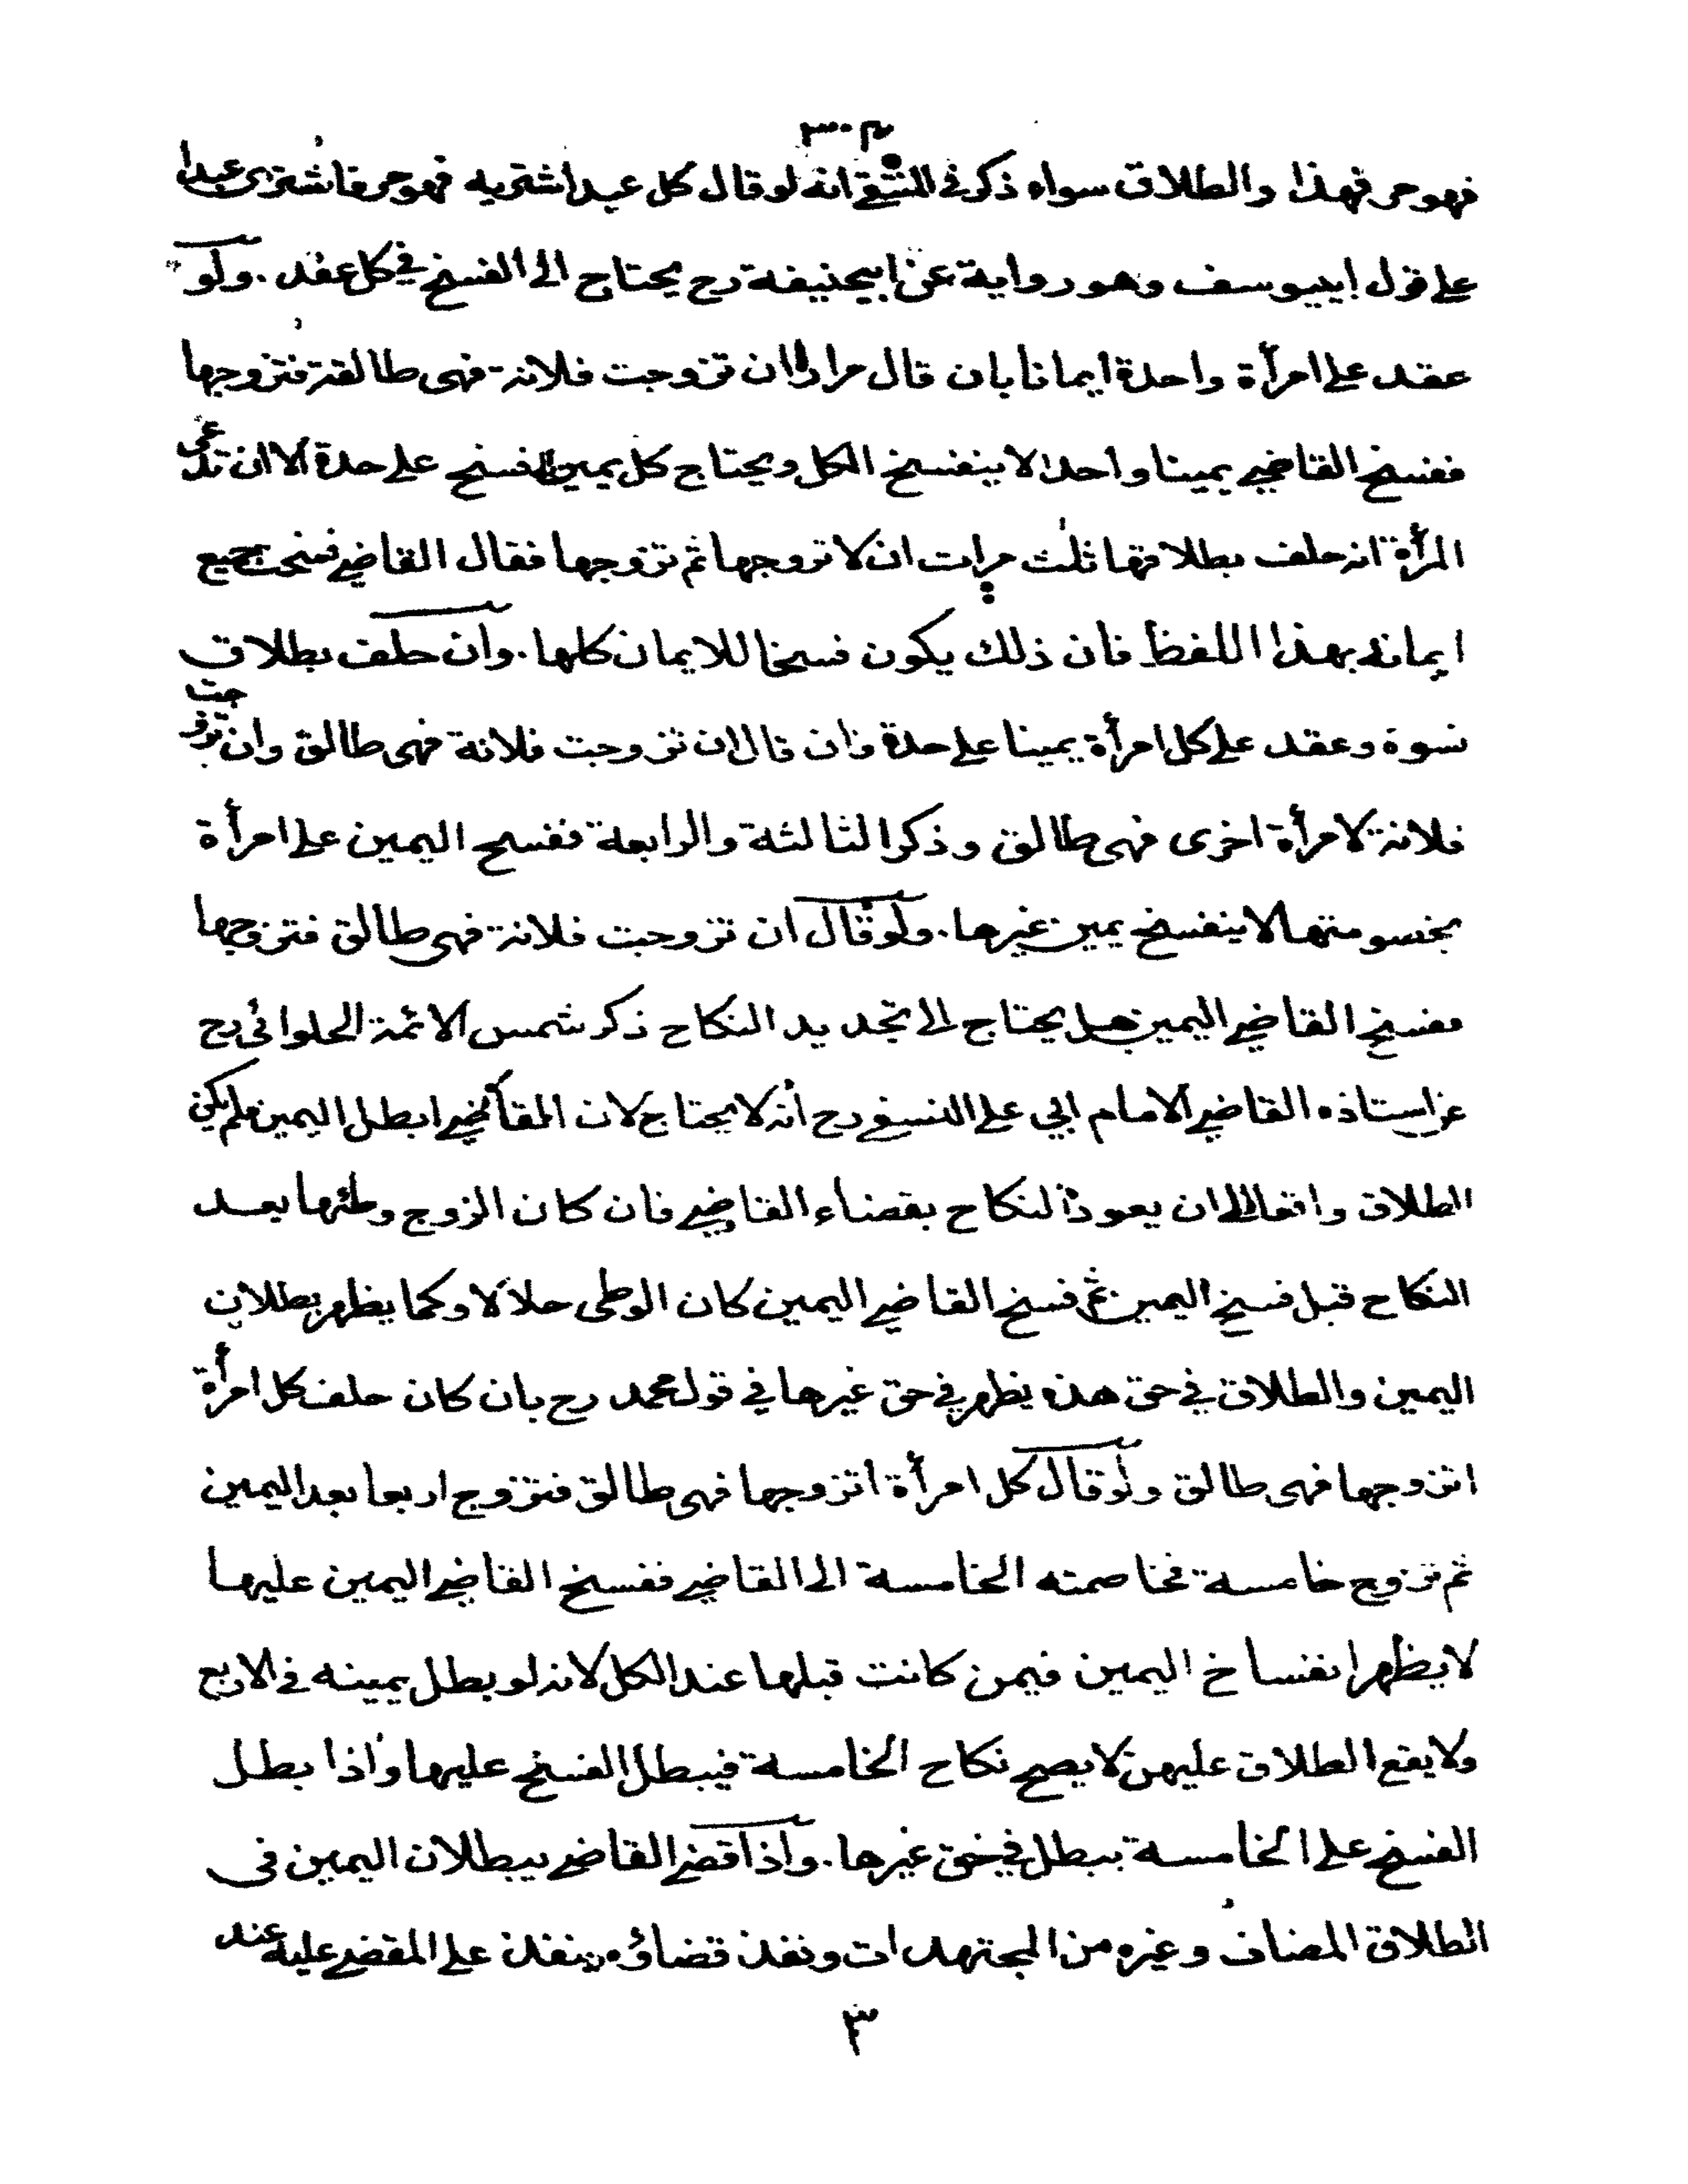 فهو حر فهذا والطلاق سواء ذكر في المنتقى انه لو قال كل عبد اشتريه فهو حر فاشترى عبدا
على قول ابييوسف وهو رواية عن ابيحنيفة رح يحتاج الى الفسخ في كل عقد . ولو
عقد على امرأة واحدة ايمانا بان قال مرارا ان تزوجت فلانة فهى طالقة فتزوجها
ففسخ القاضي يمينا واحدا لا ينفسخ الكل ويحتاج كل يمين الفسخ على حدة الا ان تدعى
المرأة انه حلف بطلاقها ثلث مرات ان لا تزوجها ثم تزوجها فقال القاضي فسخت جميع
ايمانه بهذا اللفظ فان ذلك يكون فسخا للايمان كلها . وان حلف بطلاق
نسوة وعقد على كل امرأة يمينا على حدة فان قال ان تزوجت فلانة فهى طالق وان تزوجت
فلانة لامرأة اخرى فهى طالق وذكر الثالثة والرابعة ففسخ اليمين على امرأة
بخسومتها لا ينفسخ يمين غيرها . ولو قال ان تزوجت فلانة فهى طالق فتزوجها
ففسخ القاضي اليمين هل يحتاج الى تجديد النكاح ذكر شمس الائمة الحلوائى رح
عن استاذه القاضي الامام ابي على النسفي رح انه لا يحتاج لان القاضي ابطل اليمين فلم يكن
الطلاق واقعا الا ان يعود النكاح بقضاء القاضي فان كان الزوج وطئها بعد
النكاح قبل فسخ اليمين ثم فسخ القاضي اليمين كان الوطى حلالا وكما يظهر بطلان
اليمين والطلاق في حق هذه يظهر في حق غيرها في قول محمد رح بان كان حلف كل امرأة
اتزوجها فهى طالق ولو قال كل امرأة اتزوجها فهى طالق فتزوج اربعا بعد اليمين
ثم تزوج خامسة فخاصمته الخامسة الى القاضي ففسخ القاضي اليمين عليها
لا يظهر انفساخ اليمين فيمن كانت قبلها عند الكل لانه لو بطل يمينه في الاربع
ولا يقع الطلاق عليهن لا يصح نكاح الخامسة فيبطل الفسخ عليها واذا بطل
الفسخ على الخامسة يبطل في حق غيرها . واذا قضى القاضي ببطلان اليمين فى
الطلاق المضاف وغيره من المجتهدات ونفذ قضاؤه ينفذ على المقضي عليه عند
٣